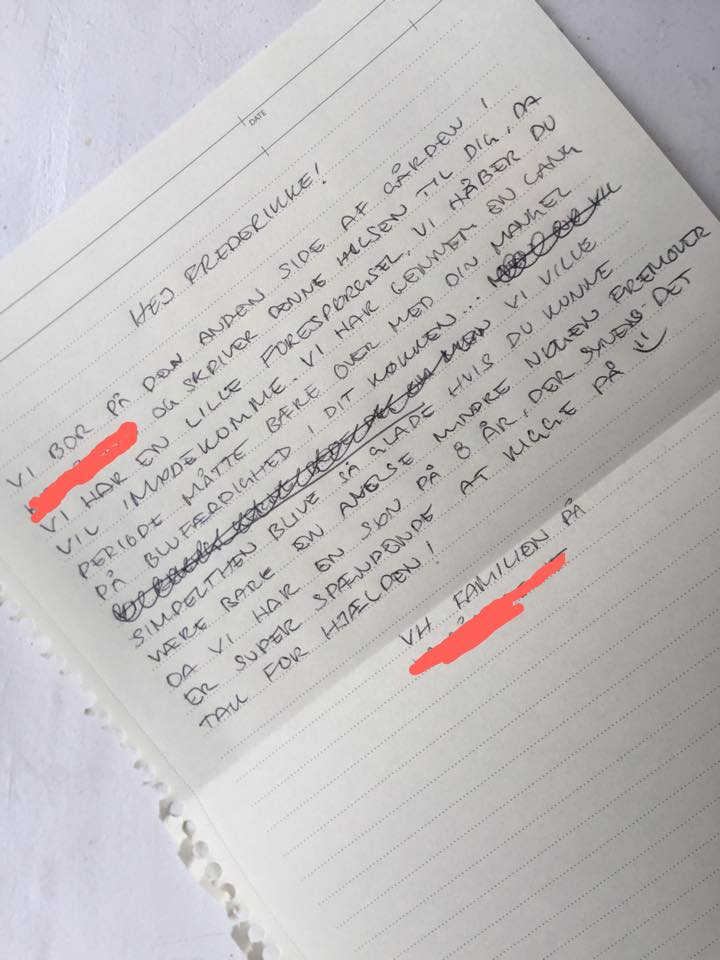 DATE
HEJ FREDERIKKE!
VI BOR PÅ DEN ANDEN SIDE AF GÅRDEN I
OG SKRIVER DENNE HILSEN TIL DIG, DA
VI HAR EN LILLE FORESPØRGSEL. VI HÅBER DU
VIL IMØDEKOMME. VI HAR GENNEM EN LANG
PERIODE MÅTTE BÆRE OVER MED DIN MANGEL
PÅ BLUFÆRDIGHED I DIT KØKKEN...
MEN VI VILLE
SIMPELTHEN BLIVE SÅ GLADE HVIS DU KUNNE
VÆRE BARE EN ANELSE MINDRE NØGEN FREMOVER
DA VI HAR EN SØN PÅ 8 ÅR, DER SYNES DET
ER SUPER SPÆNDENDE AT KIGGE PÅ
TAK FOR HJÆLPEN!
VH FAMILIEN PÅ